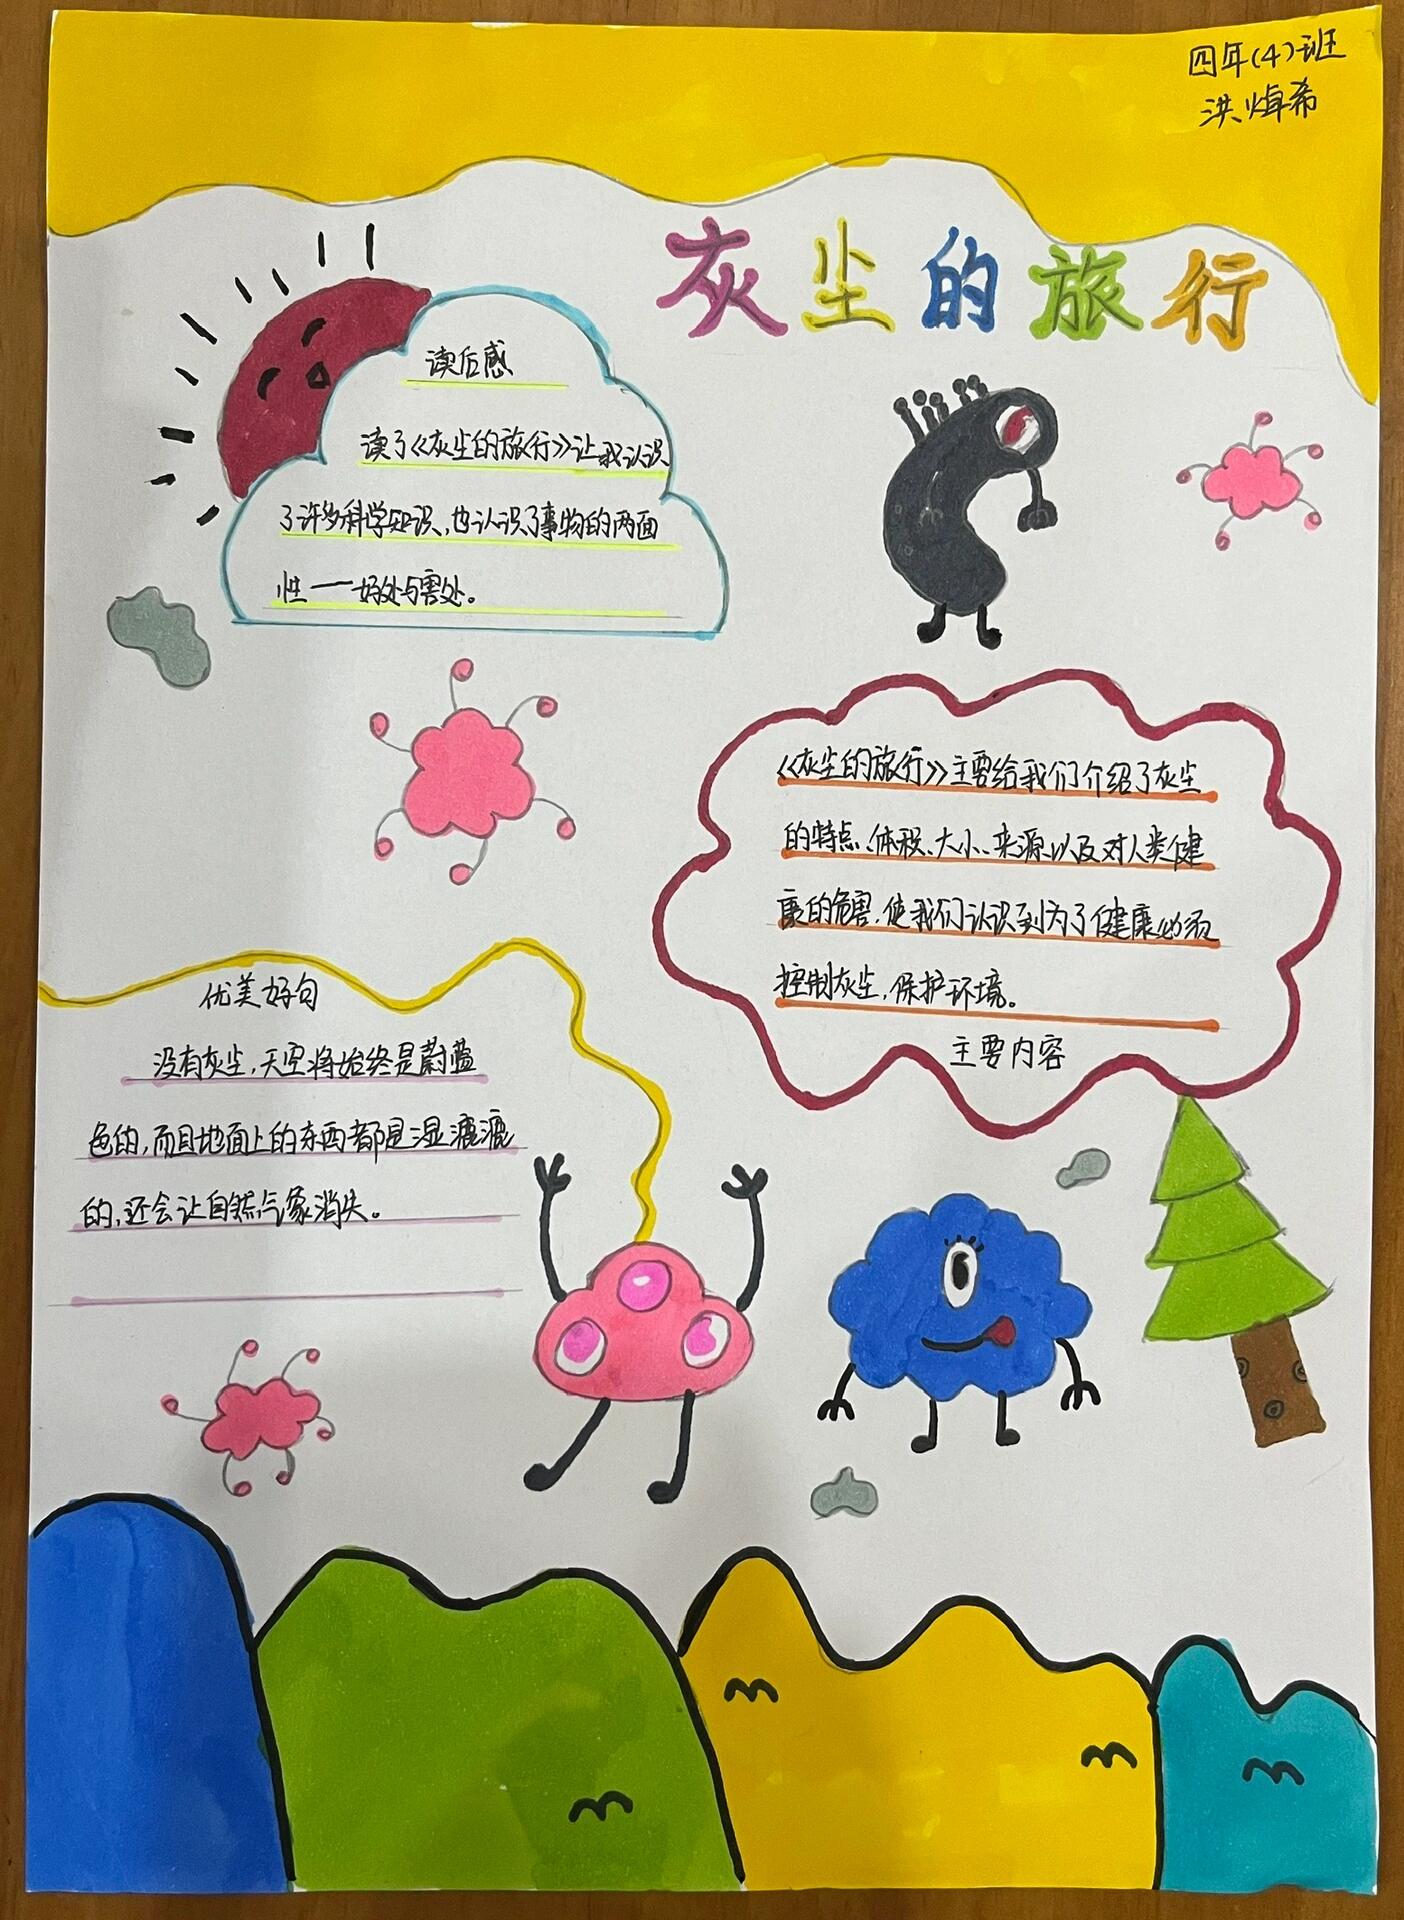 四年(4)班
洪焯希
灰尘的旅行
读后感
读了《灰尘的旅行》让我认识
了许多科学知识,也认识了事物的两面
性——好处与害处。
《灰尘的旅行》主要给我们介绍了灰尘
的特点、体积、大小、来源以及对人类健
康的危害,使我们认识到为了健康必须
控制灰尘,保护环境。
主要内容
优美好句
没有灰尘,天空将始终是蔚蓝
色的,而且地面上的东西都是湿漉漉
的,还会让自然气象消失。